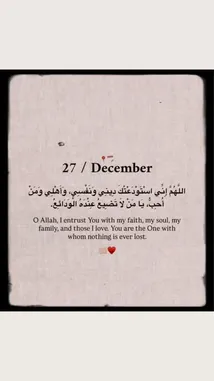 27 / December
اللَّهُمَّ إِنِّي اسْتَوْدَعْتُكَ دِينِي وَنَفْسِي، وَأَهْلِي وَمَنْ
أُحِبُّ، يَا مَنْ لَا تَضِيعُ عِنْدَهُ الْوَدَائِعُ.
O Allah, I entrust You with my faith, my soul, my
family, and those I love. You are the One with
whom nothing is ever lost.